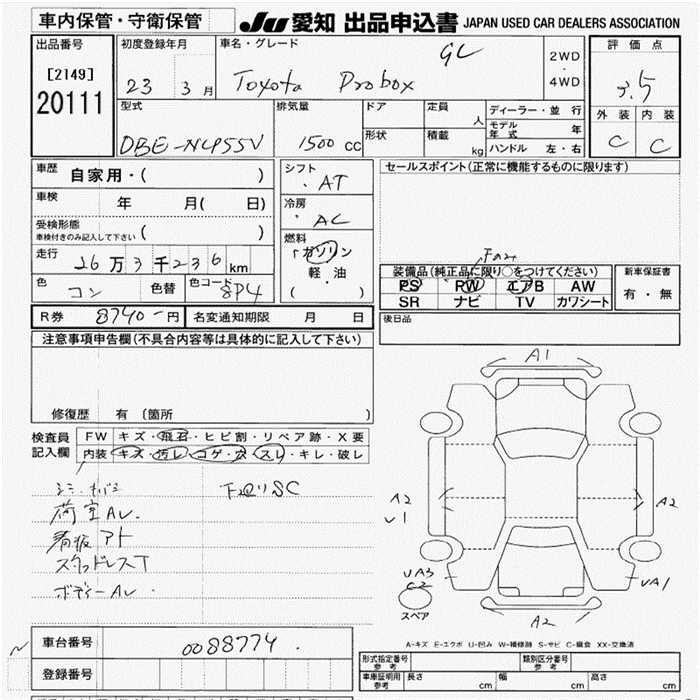 車内保管・守衛保管
JU 愛知 出品申込書 JAPAN USED CAR DEALERS ASSOCIATION
出品番号
[2149]
20111
初度登録年月
23 3 月
車名・グレード
Toyota Probox GL
2WD
・
4WD
評価点
3.5
外装 内装
C C
型式
DBE-NCP55V
排気量
1500 cc
ドア
形状
定員
人
積載
kg
ディーラー・並行
モデル年式 年
ハンドル 左・右
車歴 自家用・( )
車検 年 月( 日)
受検形態
車検付きのみ記入して下さい ( )
走行 26万3千236 km
色 コン 色替 色コード 8P4
シフト
・AT
冷房
・AC
燃料
「ガソリン
軽・油
( )
セールスポイント(正常に機能するものに限ります)
装備品(純正品に限り○をつけてください)
PS PW エアB AW
SR ナビ TV カワシート
新車保証書
有・無
R券 8740- 円 名変通知期限 月 日
後日品
注意事項申告欄(不具合内容等は具体的に記入して下さい)
修復歴 有 〔箇所 〕
検査員
記入欄
FW キズ・飛石・ヒビ割・リペア跡・X要
内装 キズ・汚レ・コゲ・穴・スレ・キレ・破レ
荷室AU.
看板アト
スタッドレスT
ボディーAU.
A1
A2
U1
A2
UA3
C2
スペア
UA1
A2
A-キズ E-エクボ U-凹み W-補修跡 S-サビ C-腐食 XX-交換済
車台番号 0088774.
登録番号
形式指定番号
参考
類別区分番号
参考
車庫証明用
参考
長さ cm 幅 cm 高さ cm